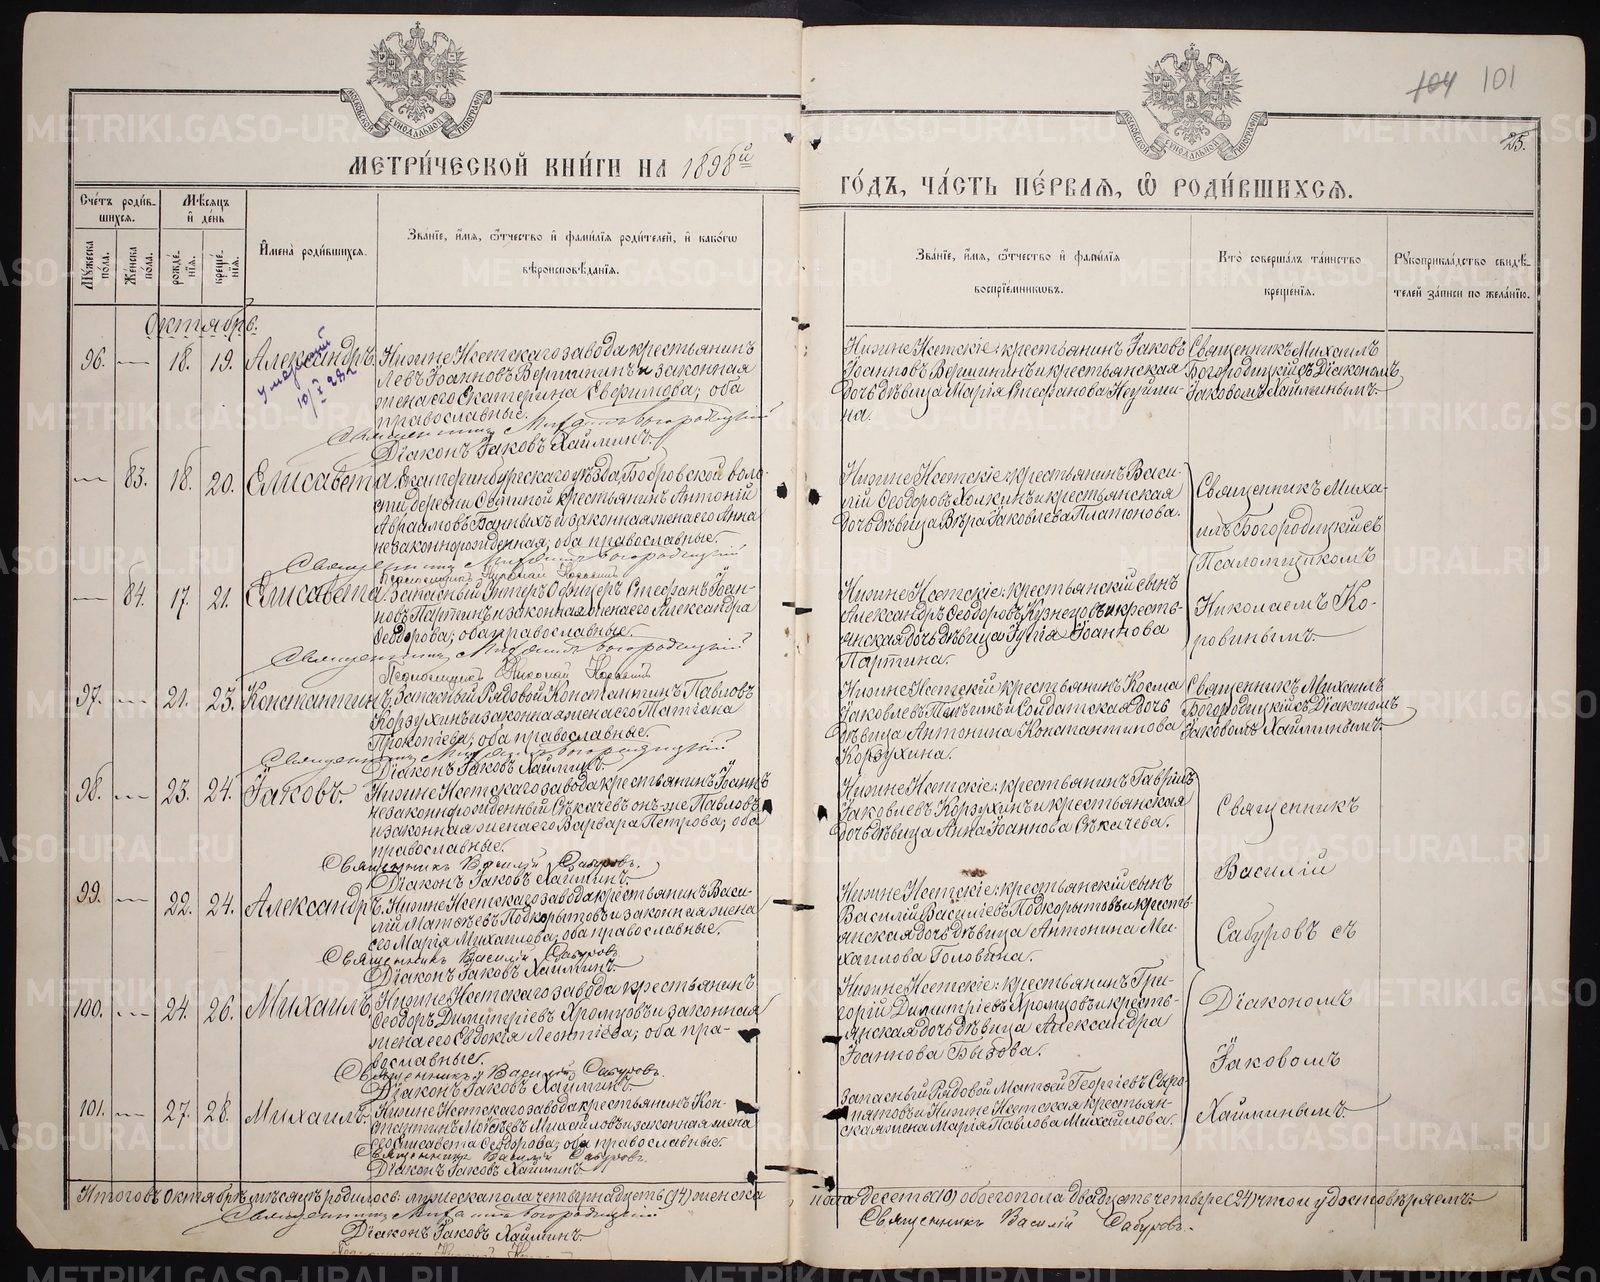 104 101
25.
МОСКОВСКОЙ СѴНОДАЛЬНОЙ ТИПОГРАФІИ
МОСКОВСКОЙ СѴНОДАЛЬНОЙ ТИПОГРАФІИ
МЕТРИ́ЧЕСКОЙ КНИ́ГИ НА 1898й
ГО́ДЪ, ЧА́СТЬ ПЕ́РВАЯ, Ѡ РОДИ́ВШИХСЯ.
Сче́тъ роди́в-
шихся.
Мѣсяцъ
и де́нь
Мꙋжеска пола.
Же́нска пола.
рожде́нїя.
креще́нїя.
Имена̀ роди́вшихся.
Зва́нїе, и́мя, ѻ҆́тчество и фами́лїя роди́телей, и како́гѡ
вѣроисповѣ́данїя.
Зва́нїе, и́мя, ѻ҆́тчество и фами́лїя
воспрїе́мникѡвъ.
Кто̀ соверша́лъ та́инство
креще́нїя.
Рꙋкоприкла́дство свидѣ́-
телей за́писи по жела́нїю.
Октябрь.
96. — 18. 19. Александръ.
умерший
10/I 28 г
Нижне Исетскаго завода крестьянинъ
Левъ Іоанновъ Вершининъ и законная
жена его Екатерина Евфимова; оба
православные.
Священникъ Михаилъ Богородицкій
Діаконъ Іаковъ Хайминъ.
Нижне Исетскіе: крестьянинъ Іаковъ
Іоанновъ Вершининъ и крестьянская
дочь дѣвица Марія Стефанова Неуйми-
на.
Священникъ Михаилъ
Богородицкій съ Діакономъ
Іаковомъ Хайминымъ.
— 83. 18. 20. Елисавета.
Екатеринбургскаго уѣзда Бобровской воло-
сти деревни Свѣтлой крестьянинъ Антоній
Авраамовъ Банныхъ и законная жена его Анна
незаконнорожденная; оба православные.
Священникъ Михаилъ Богородицкій
Псаломщикъ Николай Коровинъ
Нижне Исетскіе: крестьянинъ Васи-
лій Ѳеодоровъ Холкинъ и крестьянская
дочь дѣвица Вѣра Іаковлева Платонова.
Священникъ Миха-
илъ Богородицкій съ
Псаломщикомъ
Николаемъ Ко-
ровинымъ.
— 84. 17. 21. Елисавета.
Запасный Унтеръ Офицеръ Стефанъ Іоан-
новъ Партинъ и законная жена его Александра
Ѳеодорова; оба православные.
Священникъ Михаилъ Богородицкій
Псаломщикъ Николай Коровинъ
Нижне Исетскіе: крестьянскій сынъ
Александръ Ѳеодоровъ Кузнецовъ и кресть-
янская дочь дѣвица Іулія Іоаннова
Партина.
97. — 21. 23. Константинъ.
Запасный Рядовой Константинъ Павловъ
Корзухинъ и законная жена его Татіана
Прокопіева; оба православные.
Священникъ Михаилъ Богородицкій
Діаконъ Іаковъ Хайминъ.
Нижне Исетскій крестьянинъ Косма
Іаковлевъ и Солдатская дочь
дѣвица Антонина Константинова
Корзухина.
Священникъ Михаилъ
Богородицкій съ Діакономъ
Іаковомъ Хайминымъ.
98. — 23. 24. Іаковъ.
Нижне Исетскаго завода крестьянинъ Іоаннъ
незаконнорожденный Сѣкачевъ онъ-же Павловъ
и законная жена его Варвара Петрова; оба
православные.
Священникъ Василій Сабуровъ.
Діаконъ Іаковъ Хайминъ.
Нижне Исетскіе: крестьянинъ Гавріилъ
Іаковлевъ Корзухинъ и крестьянская
дочь дѣвица Анна Іоаннова Сѣкачева.
Священникъ
Василій
Сабуровъ съ
Діакономъ
Іаковомъ
Хайминымъ.
99. — 22. 24. Александръ.
Нижне Исетскаго завода крестьянинъ Васи-
лій Матѳеевъ Подкорытовъ и законная жена
его Марія Михаилова; оба православные.
Священникъ Василій Сабуровъ.
Діаконъ Іаковъ Хайминъ.
Нижне Исетскіе: крестьянскій сынъ
Василій Василіевъ Подкорытовъ и кресть-
янская дочь дѣвица Антонина Ми-
хаилова Головина.
100. — 24. 26. Михаилъ.
Нижне Исетскаго завода крестьянинъ
Ѳеодоръ Димитріевъ Хромцовъ и законная
жена его Евдокія Леонтіева; оба пра-
вославные.
Священникъ Василій Сабуровъ.
Діаконъ Іаковъ Хайминъ.
Нижне Исетскіе: крестьянинъ Гри-
горій Димитріевъ Хромцовъ и кресть-
янская дочь дѣвица Александра
Іоаннова Бызова.
101. — 27. 28. Михаилъ.
Нижне Исетскаго завода крестьянинъ Кон-
стантинъ Моѵсеевъ Михаиловъ и законная жена
его Елисавета Ѳеодорова; оба православные.
Священникъ Василій Сабуровъ.
Діаконъ Іаковъ Хайминъ.
Запасный Рядовой Матѳей Георгіевъ Сыро-
пятовъ и Нижне Исетская крестьян-
ская жена Марія Павлова Михаилова.
Итого въ Октябрѣ мѣсяцѣ родилось: мужеска пола четырнадцать (14) женска
пола десять (10) обоего пола двадцать четыре (24) что и удостовѣряемъ:
Священникъ Михаилъ Богородицкій
Священникъ Василій Сабуровъ.
Діаконъ Іаковъ Хайминъ.
METRIKI.GASO-URAL.RU